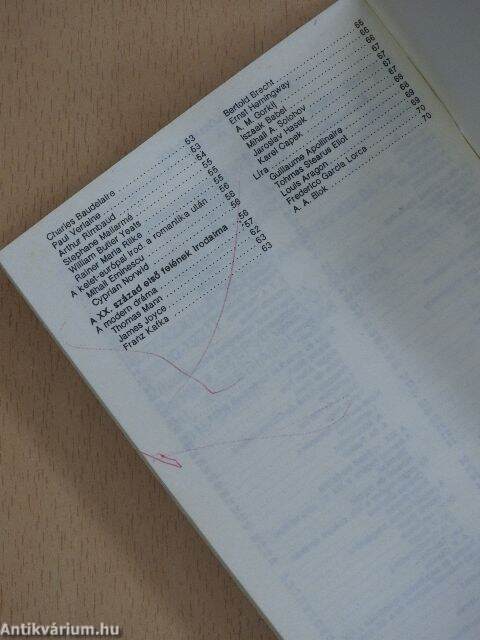 Charles Baudelaire 53
Paul Verlaine 53
Arthur Rimbaud 54
Stephane Mallarmé 55
William Butler Yeats 55
Rainer Maria Rilke 55
A kelet-európai irod. a romantika után 56
Mihail Eminescu 56
Cyprian Norwid 56
A XX. század első felének irodalma 56
A modern dráma 57
Thomas Mann 62
James Joyce 63
Franz Kafka 63
Bertold Brecht
Ernst Hemingway 66
A. M. Gorkij 66
Iszaak Babel 67
Mihail A. Solohov 67
Jaroslav Hasek 67
Karel Capek
Líra 68
Guillaume Apollinaire 68
Tohmas Stearus Eliot 69
Louis Aragon 69
Frederico Garcia Lorca 70
A. A. Blok 70
Antikvárium.hu